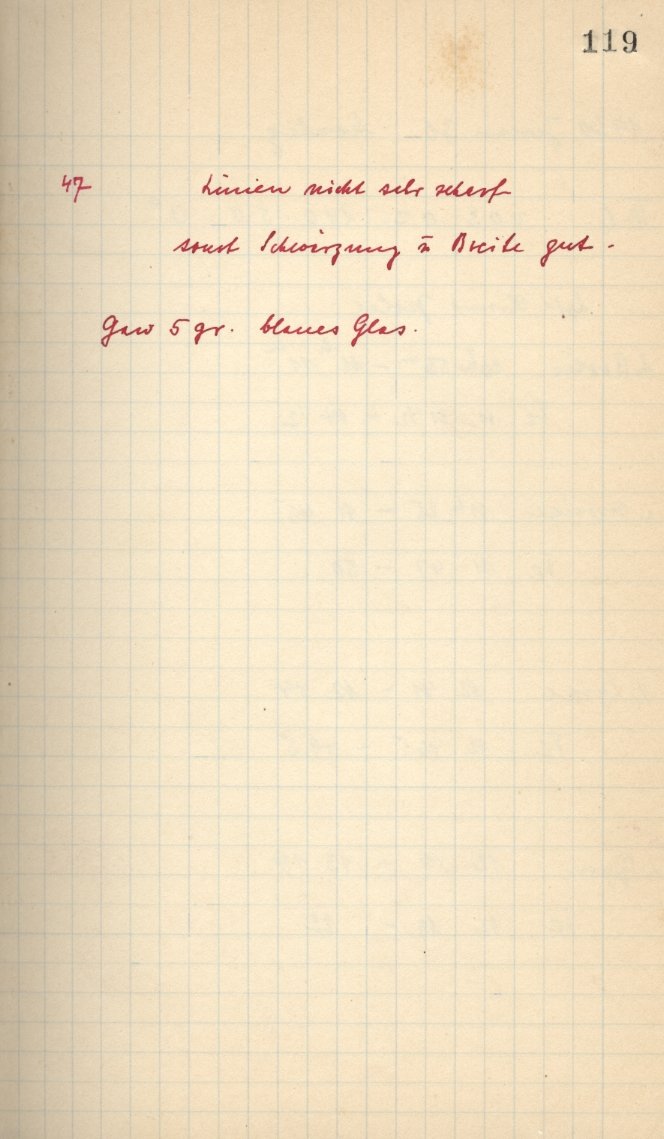 119
47 Linien nicht sehr scharf
sonst Schwärzung ü Breite gut.
5 gr. blaues Glas.